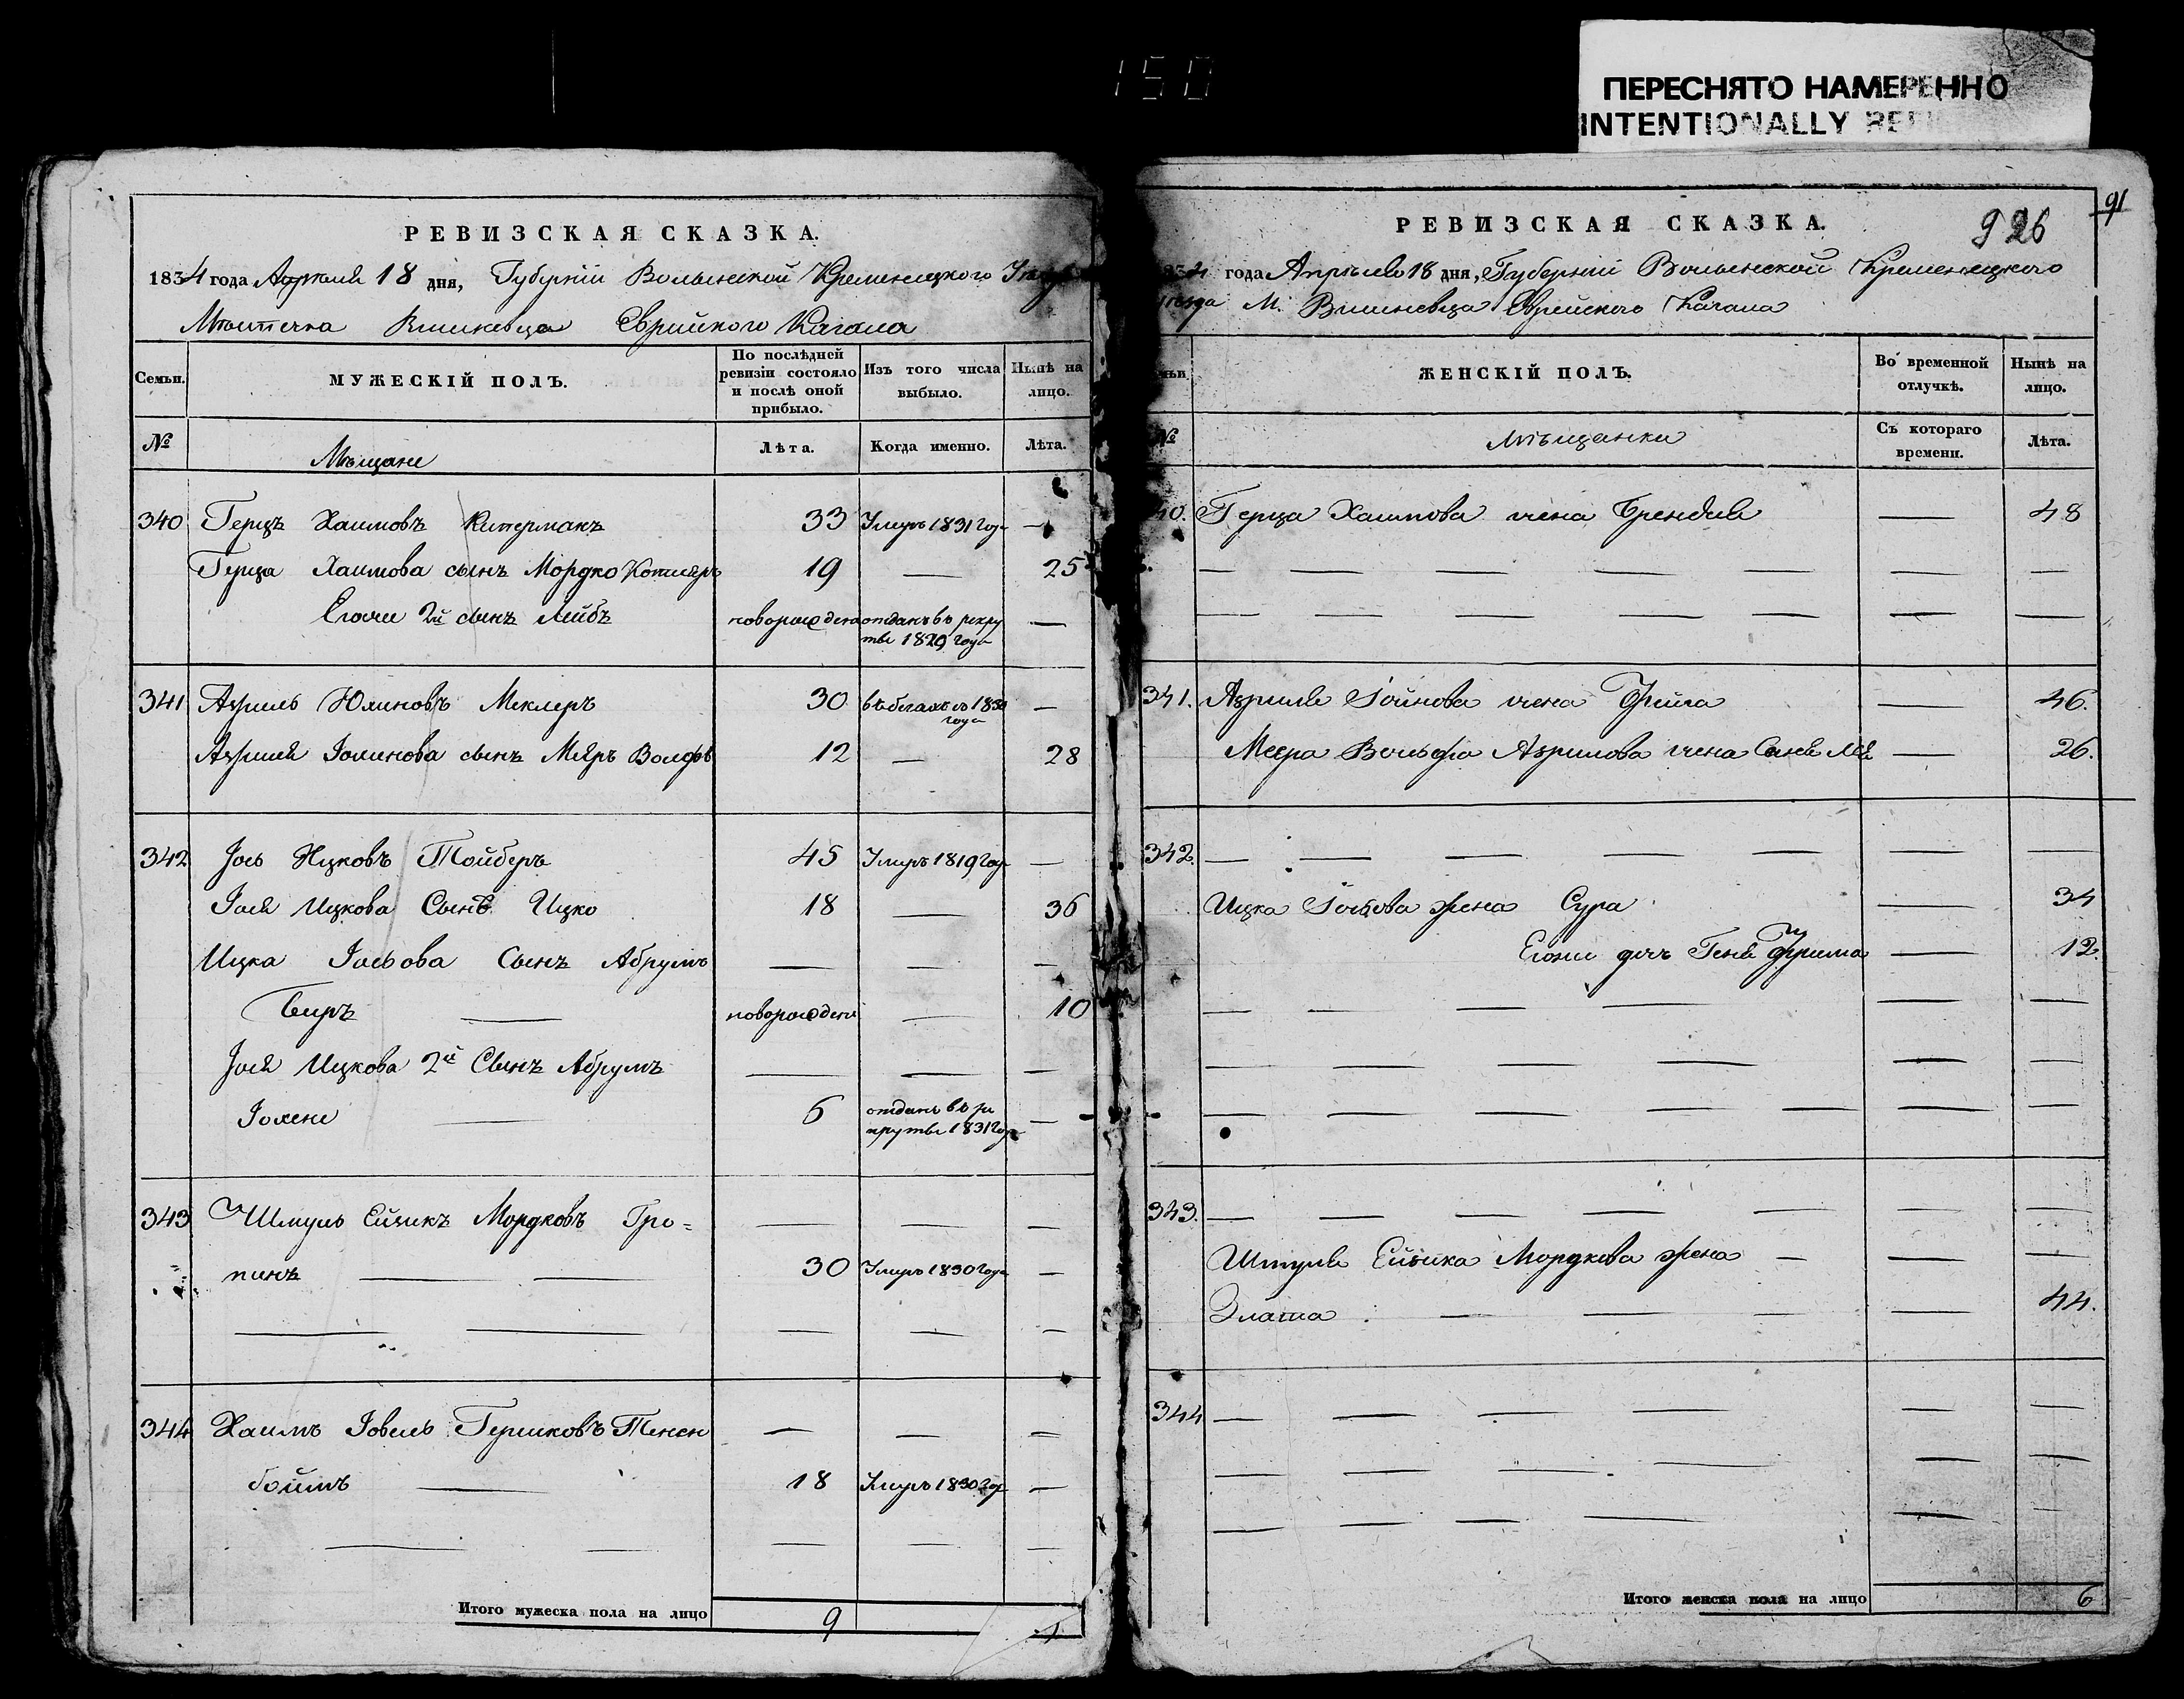 150
ПЕРЕСНЯТО НАМЕРЕННО
INTENTIONALLY
РЕВИЗСКАЯ СКАЗКА.
1834 года Апреля 18 дня, Губерніи Волынской Кременецкого
Местечка Вишневца Еврейского Кагала
Семьи.
МУЖЕСКІЙ ПОЛЪ.
По послѣдней ревизіи состояло и послѣ оной прибыло.
Изъ того числа выбыло.
Нынѣ на лицо.
№
Мещане
Лѣта.
Когда именно.
Лѣта.
340 Герцъ Хаимовъ 33 Умеръ 1831 года —
Герца Хаимова сынъ Мордко 19 — 25
Егоже 2й сынъ Лейбъ новорожденъ отданъ въ рекруты 1829 года —
341 Азриль Меклеръ 30 въ бегахъ съ 1830 года —
Азриля сынъ Мееръ Волфъ 12 — 28
342 Іось Ицковъ Тойберъ 45 Умеръ 1819 года —
Іося Ицкова Сынъ Ицко 18 — 36
Ицка Іосьова Сынъ Абрумъ — — —
Беръ — новорожденъ — 10
Іося Ицкова 2й Сынъ Абрумъ — — —
Іохене — 6 отданъ въ рекруты 1831 года —
343 Шмуль Ейзикъ Мордковъ Гро= — — —
пинъ — — 30 Умеръ 1830 года —
— — — — —
344 Хаимъ Іовель Гершковъ Тенен — — —
боймъ — 18 Умеръ 1830 года —
— — — — —
Итого мужеска пола на лицо 9
91
926
РЕВИЗСКАЯ СКАЗКА.
года Апреля 18 дня, Губерніи Волынской Кременецкого
М. Вишневца Еврейского Кагала
ЖЕНСКІЙ ПОЛЪ.
Во временной отлучкѣ.
Нынѣ на лицо.
№
Мѣщанки
Съ котораго времени.
Лѣта.
Герца Хаимова жена Брендля — 48
— — — — — — —
— — — — — — —
341. Азриля жена Фейга — 46.
Меера Вольфа Азрилова жена — 26.
342. — — — — — — —
Ицка Іосьова жена Сура — 34
Егоже дочь Геня Фрима — 12.
— — — — — —
— — — — — —
— — — — — — —
343. — — — — — — —
Шмуля Ейзика Мордкова жена — —
Злата — — — — 44.
344 — — — — — —
— — — — — —
— — — — — —
Итого женска пола на лицо 6